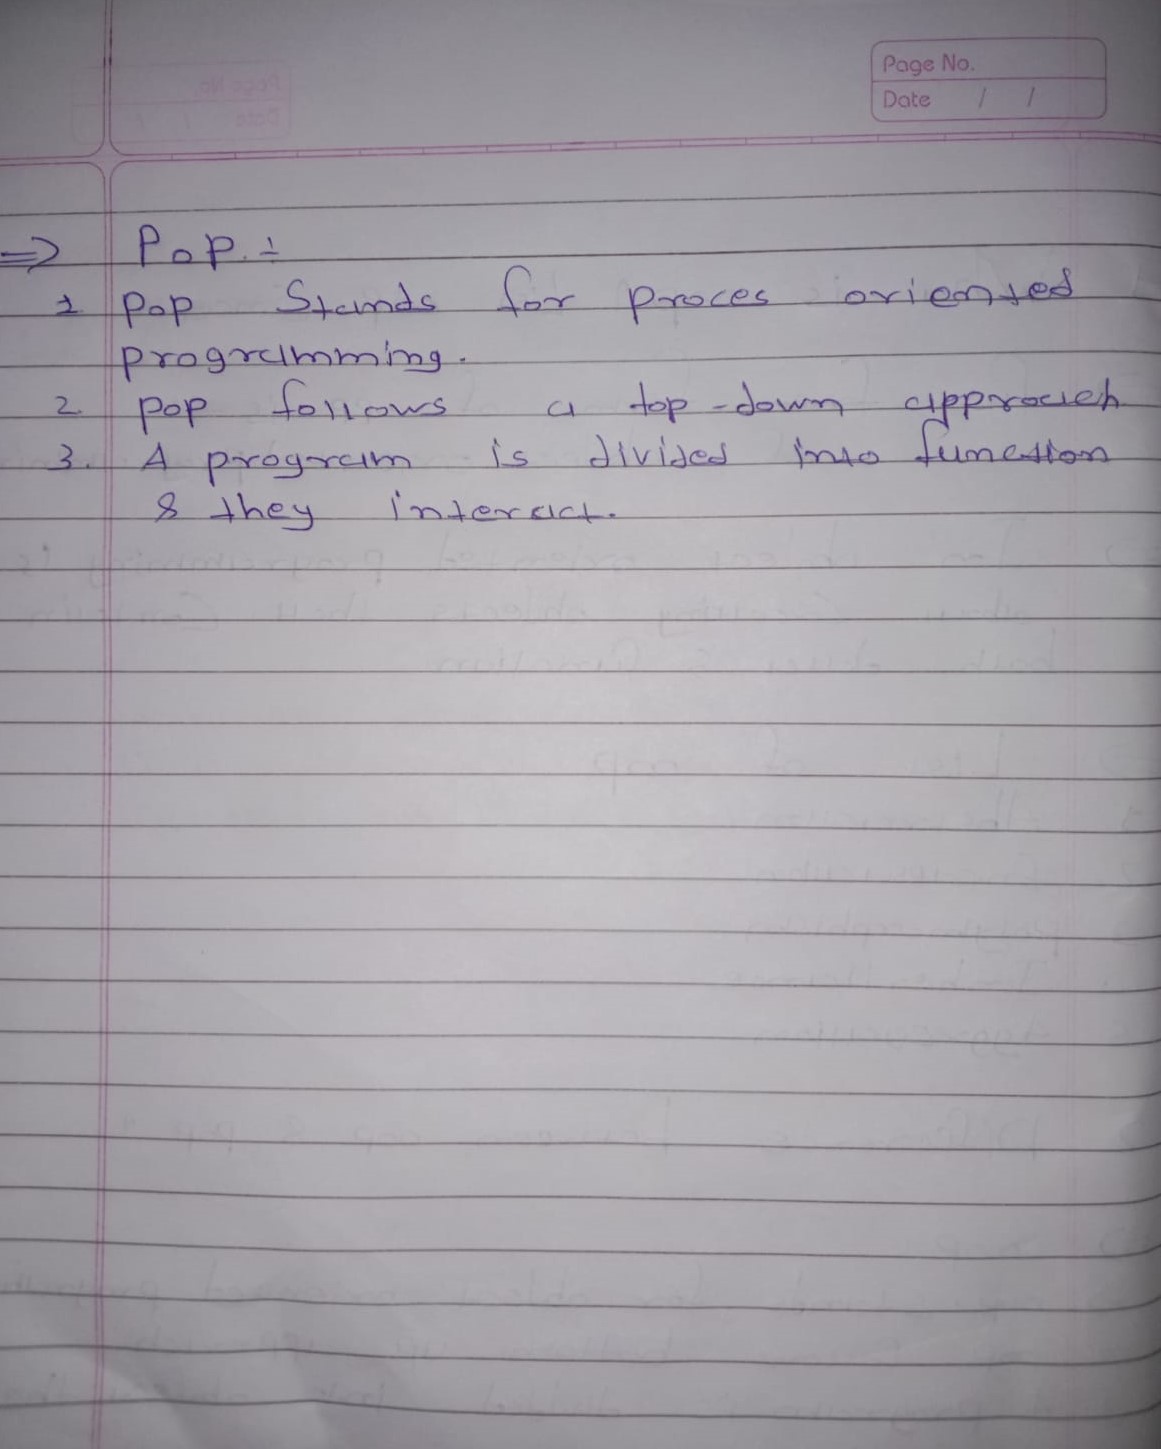 Page No.
Date / /
⇒ Pop :-
1 Pop Stands for proces oriented
programming.
2. pop follows a top-down approach
3. A program is divided into function
& they interact.